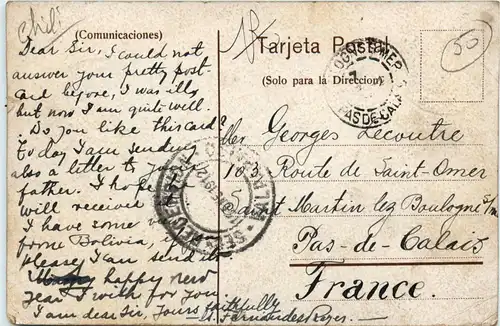 Chili
(Comunicaciones)
Tarjeta Postal
(Solo para la Direccion)
50
Dear Sir, I could not
answer your pretty post-
card before, I was ills
but now I am quite well.
Do you like this card?
To day I am sending
also a letter to your
father. I hope
will receive
I have some
from Bolivia, if
Please I can send the
happy new
year I wish for you
I am dear Sir, yours faithfully
A. Fernandes Rozas.
Georges Lecoutre
Route de Saint-Omer
Saint Martin lez Boulogne s/m
Pas-de-Calais
France.
PAS DE CALAIS
VALPARAISO